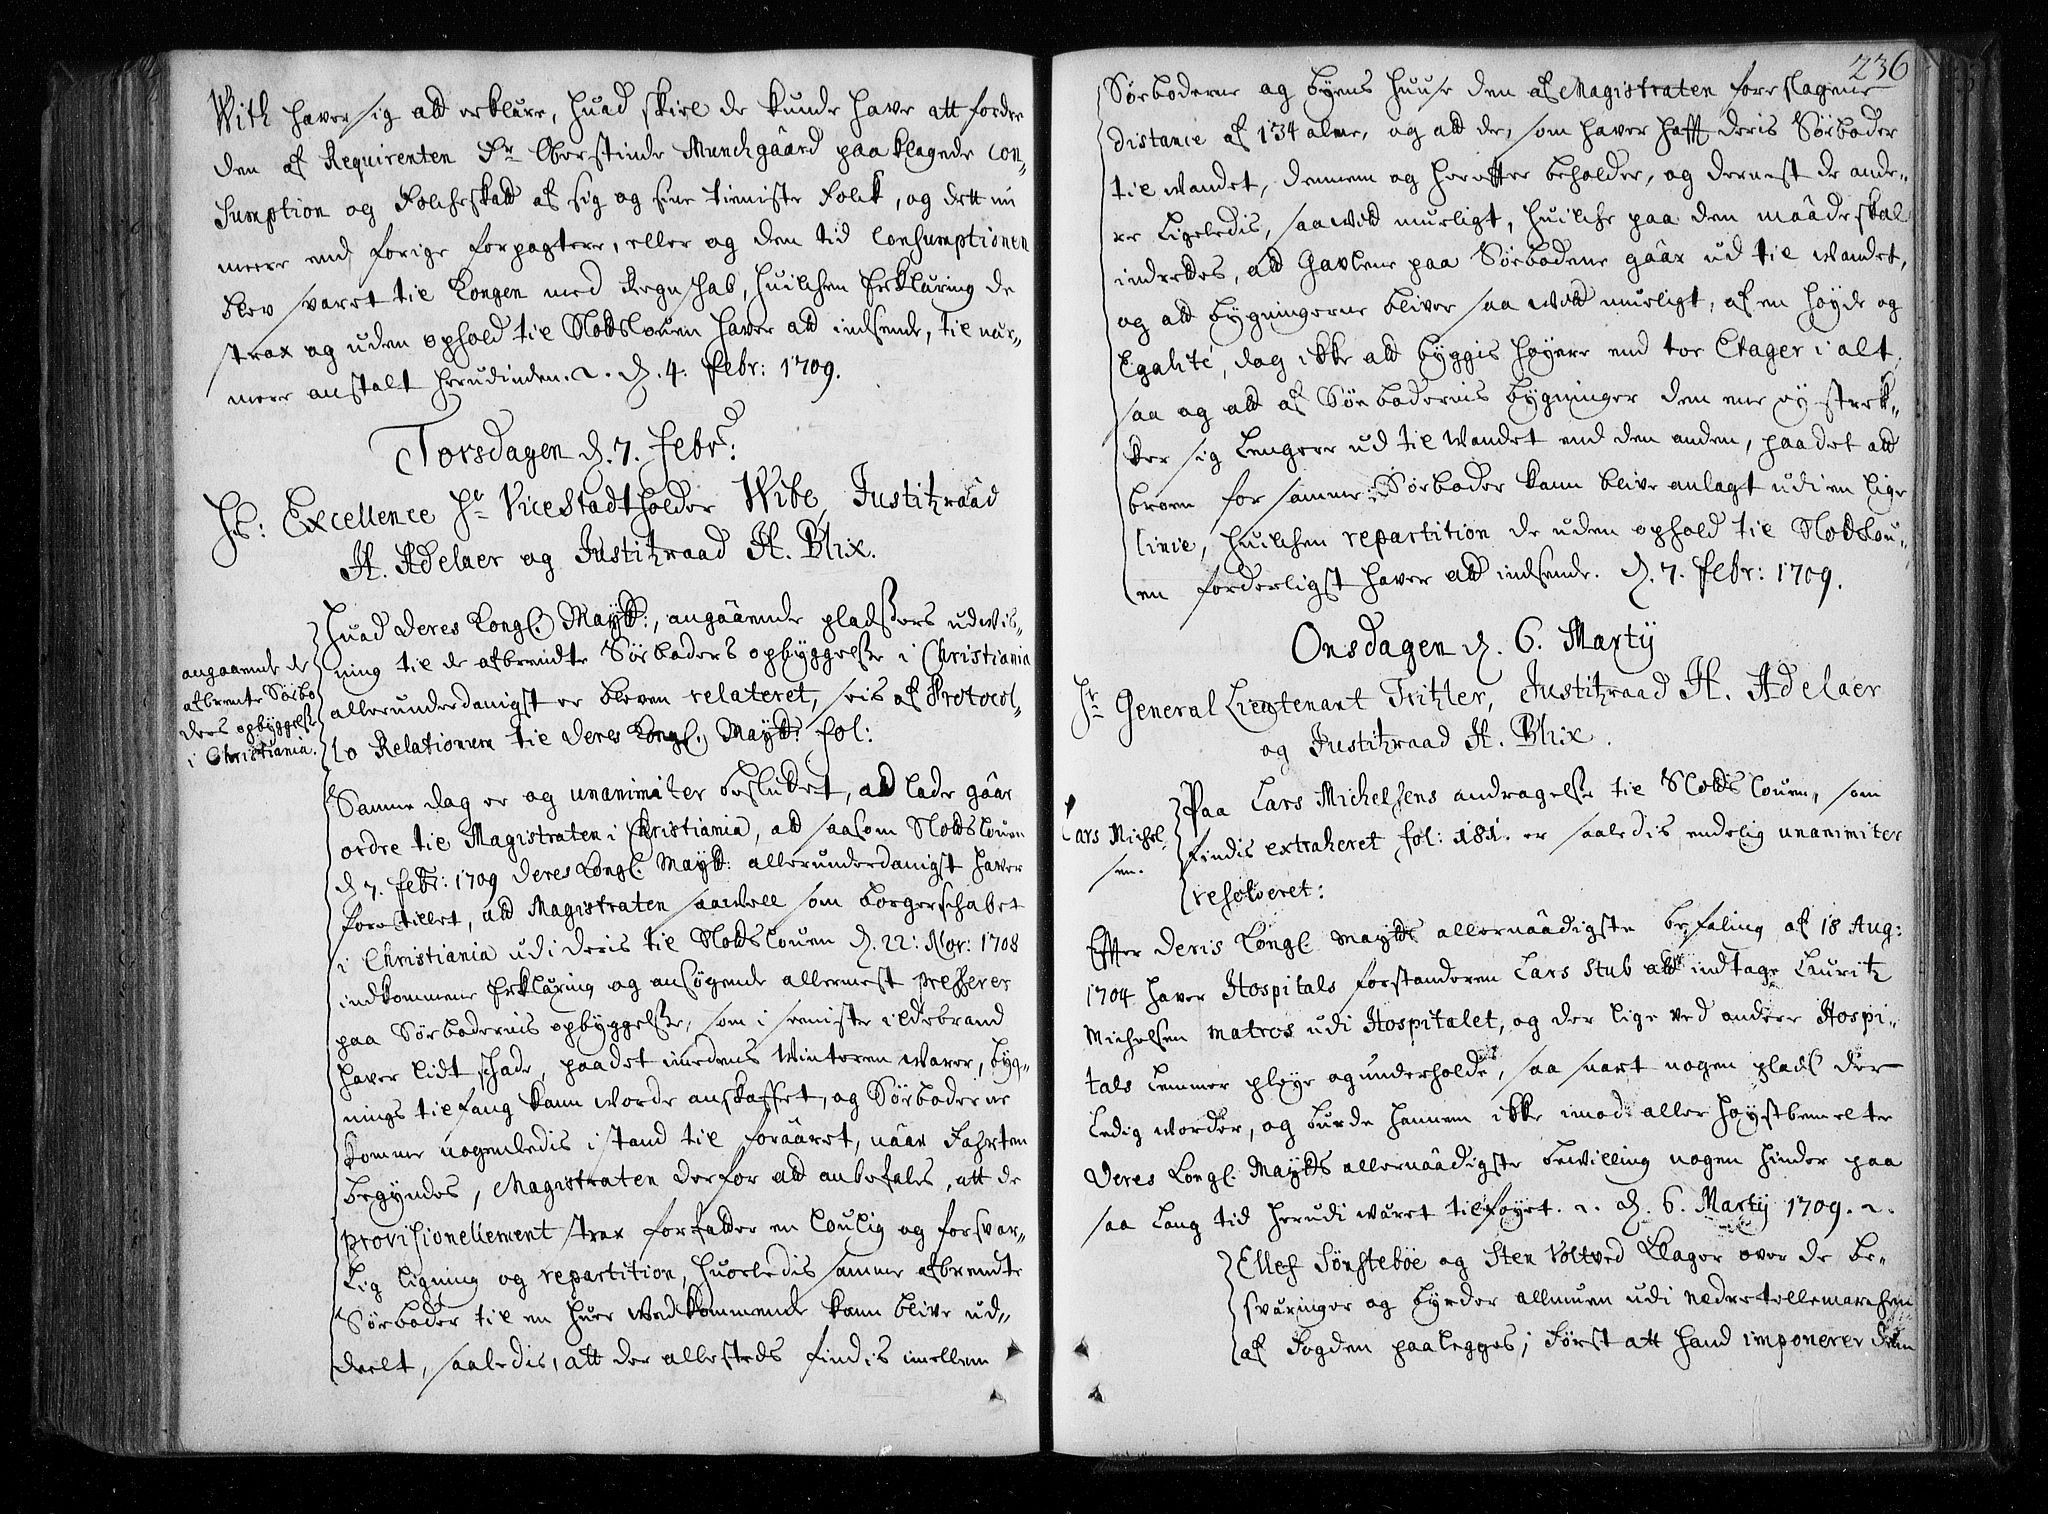 With haver sig att erklære, huad skiel de kunde have att fordre
den af Requirenten Fr Oberstinde Munchgaard paaklagede Con„
sumption og Folcheskatt af sig og sine tieniste Folck, og dett nu
meere end forige forpagtere, eller og den tid Consumptionen
blev svaret til Kongen med Regnschab, huilchen Erklæring de
strax og uden ophold til Slotsloven haver att indsende, til nær„
mere anstalt herudinden. d. 4. Febr: 1709.
Torsdagen d. 7. Febr:
Hs: Excellence Hr Vice Stadtholder Wibe, Justitzraad
H. Adelaer og Justitzraad H. Blix.
angaaende de
afbrendte Søebo
ders opbyggelse
i Christiania.
Huad Deres Kongl. Maytt:, angaaende pladsers udvis„
ning til de afbrendte Søeboders opbyggelse i Christiania
allerunderdanigst er bleven relateret, seis af Protocol„
lo Relationum til Deres Kongl. Maytt: fol:
Samme dag er og unanimiter besluttet, att lade gaar
ordre til Magistraten i Christiania, att saasom Slotsloven
d. 7. Febr: 1709 Deres Kongl. Maytt: allerunderdanigst haver
forestillet, att Magistraten saavell som borgerschabet
i Christiania udi deris til Slotsloven d. 22: Nov: 1708
indkommene Erklæring og ansøgende allermest presserer
paa Søebodernis opbyggelse, som i seeniste ildebrand
haver lidt schade, paadet imedens Winteren varer, byg„
nings tilfang kann worde anskaffet, og Søeboderne
komme nogenledis i stand til foraaret, naar Fahrten
begyndes, Magistraten derfor att anbefales, att de
provisionellement strax forfatter en loulig og forsvar„
lig ligning og repartition, huorledis samme afbrendte
Søeboder til en huer vedkommende kann blive ud„
deelt, saaledis, att der allesteds findis imellem
236
Søeboderne og byens huuse den af Magistraten foreslagene
distance af 134 alne, og att de, som haver hafft deris Søeboder
til wandet, dennem og hereffter beholder, og dernest de ande„
re ligeledis, saavitt mueligt, huilche paa den maade skal
indrettes, att Gavlene paa Søebodene gaar ud til wandet,
og att bygningerne bliver saa vitt mueligt, af en høyde og
Egalité, dog ikke att byggis høyere end toe Etager i alt,
saa og att af Søebodernis bygninger den ene ey strek„
ker sig lengere ud til Wandet end den anden, paadet att
broen for samme Søeboder kann blive anlagt udi en lige
linie, huilchen repartition de uden ophold til Slotslou„
en forderligst haver att indsende. d. 7. Febr: 1709.
Onsdagen d. 6. Marty
Hr General Lieutenant Tritzler, Justitzraad H. Adelaer
og Justitzraad H. Blix.
Lars Michel
sen.
Paa Lars Michelsens andragelse til Slotslouen, som
findis extraheret fol: 181. er saaledis endelig unanimiter
resolveret:
Effter Deris Kongl. Maytts allernaadigste befaling af 18 Aug:
1704 haver Hospitals forstanderen Lars Stub att indtage Lauritz
Michelsen Matros udi Hospitalet, og der lige ved andere Hospi„
tals Lemmer pleye og underholde, saa snart nogen plads der
ledig worder, og burde hannem ikke imod aller høystbemelte
Deres Kongl. Maytts allernaadigste bevilling nogen hinder paa
saa lang tid herudi været tilføyet. d. 6. Marty 1709.
Ellef Sønstebøe og Sten Voltved Klager over de be„
sværinger og byrder allmuen udi Nedretellemarchen
af Fogden paalegges; Først att hand imponerer dem